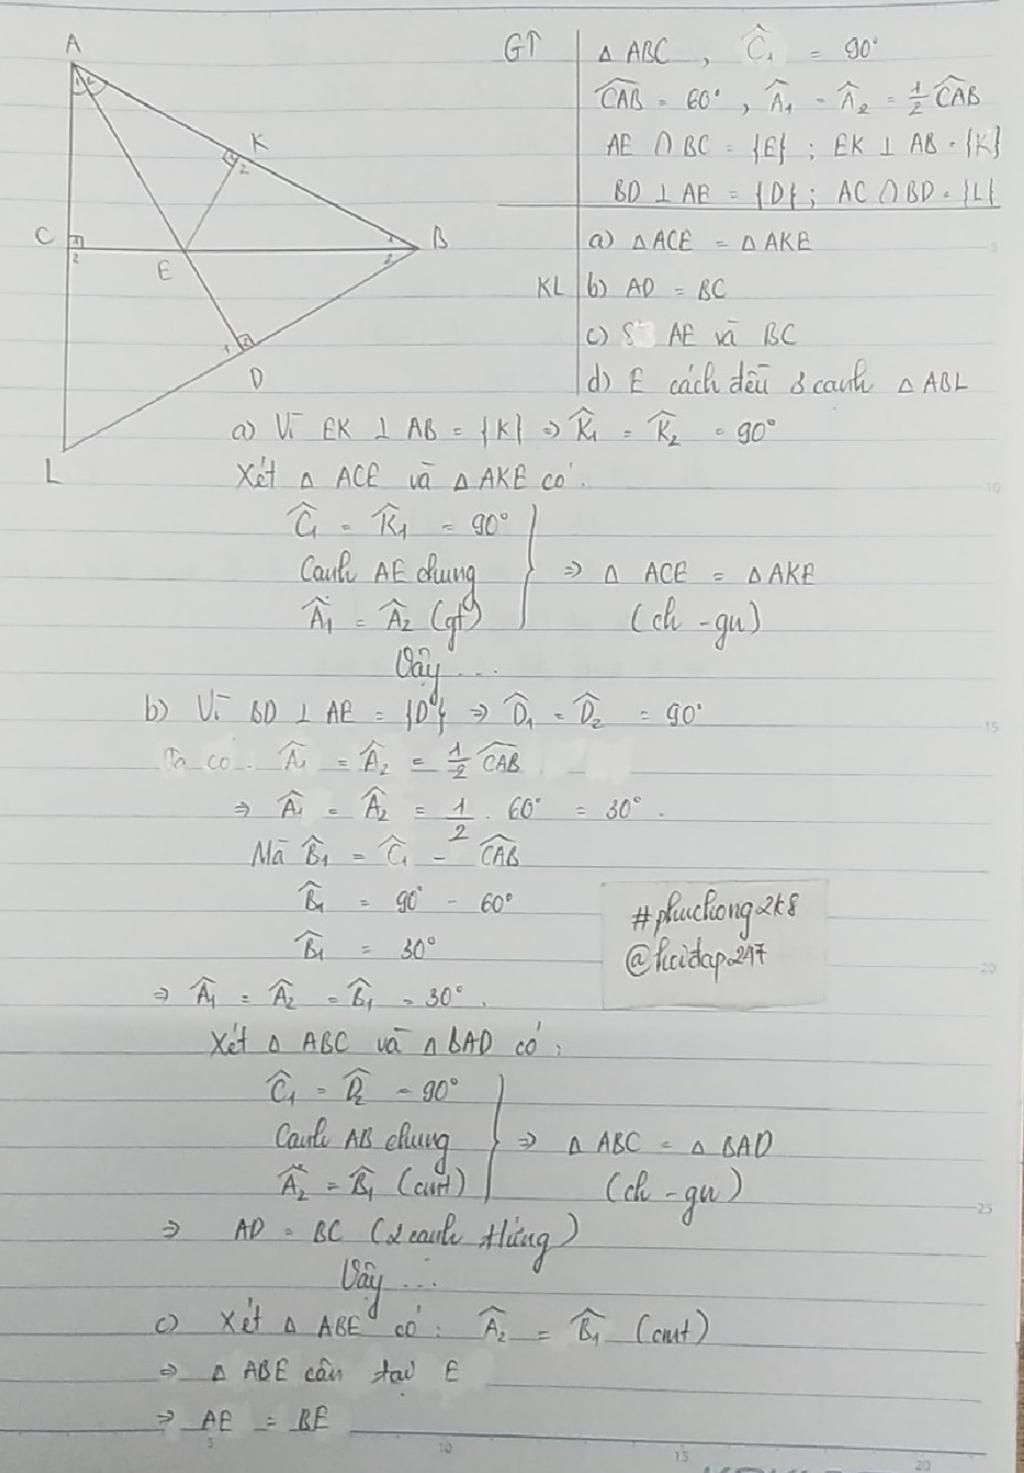 A
K
C
E
B
D
L
GT
△ ABC , Ĉ₁ = 90°
CAB = 60° , Â₁ = Â₂ = 1/2 CAB
AE ∩ BC = {E} ; EK ⊥ AB = {K}
BD ⊥ AE = {D} ; AC ∩ BD = {L}
KL
a) △ ACE = △ AKE
b) AD = BC
c) S AE và BC
d) E cách đều 3 cạnh △ ABL
a) Vì EK ⊥ AB = {K} ⇒ K̂₁ = K̂₂ = 90°
Xét △ ACE và △ AKE có:
Ĉ₁ = K̂₁ = 90°
Cạnh AE chung
Â₁ = Â₂ (gt)
⇒ △ ACE = △ AKE
(ch - gn)
Vậy ...
b) Vì BD ⊥ AE = {D} ⇒ D̂₁ = D̂₂ = 90°
Ta có: Â₁ = Â₂ = 1/2 CAB
⇒ Â₁ = Â₂ = 1/2 . 60° = 30° .
Mà B̂₁ = Ĉ₁ - CAB
B̂₁ = 90° - 60°
B̂₁ = 30°
#phuchong2k8
@hoidap247
⇒ Â₁ = Â₂ = B̂₁ = 30° .
Xét △ ABC và △ BAD có :
Ĉ₁ = D̂₂ = 90°
Cạnh AB chung
Â₂ = B̂₁ (cmt)
⇒ △ ABC = △ BAD
(ch - gn)
⇒ AD = BC (2 cạnh tứ)
Vậy ...
c) Xét △ ABE có : Â₂ = B̂₁ (cmt)
⇒ △ ABE cân tại E
⇒ AE = BE
5
10
15
20
25
5
10
15
20